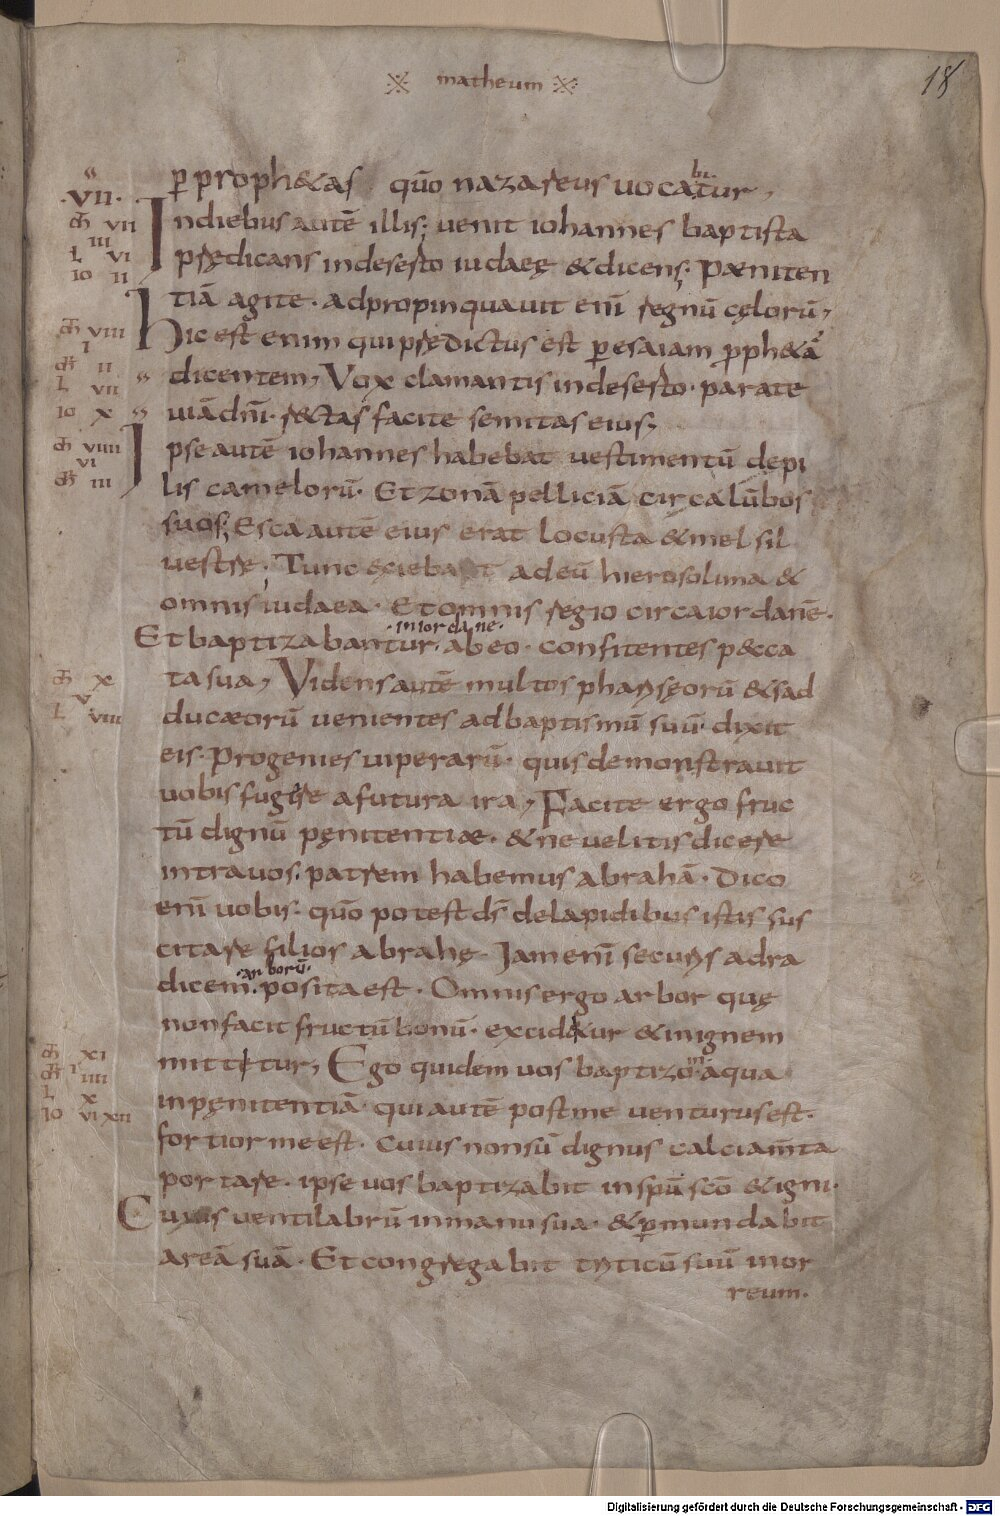 matheum
18
ꝑ proph&as quō nazareus uocabitur,
·VII· Indiebus autē illis; uenit iohannes baptista
m̄ VII
III
L VI
IO II
prędicans indeserto iudaeę &dicens; Paeniten
tiā agite · adpropinquauit eni᷄ regnū cęlorū,
m̄ VIII
I
Hic est enim quipredictus est ꝑ esaiam ꝓph&ā
II
L VII
dicentem, Vox clamantis indeserto · parate
IO X
uiā dn̄i · rectas facite semitas eius;
m̄ VIIII
VI
III
Ipse autē iohannes habebat uestimentū depi
lis camelorū · Et zonā pelliciā circa lūbos
suos; Esca autē eius erat locusta &mel sil
uestre · Tunc exiebat adeū hierosolima &
omnis iudaea · Et omnis regio circa iordanē·
·in iordane·
Et baptizabantur · abeo · confitentes pecca
m̄ X
V
L VIII
ta sua, Videns autē multos pharyseorū &sad
ducaeorū uenientes adbaptismū suū dixit
eis · Progenies uiperarū · quis demonstrauit
uobis fugere afutura ira, Facite ergo fruc
tū dignū pęnitentiae · &ne uelitis dicere
intra uos; patrem habemus abrahā · Dico
eni᷄ uobis · quō potest ds̄ delapidibus istis sus
citare filios abrahę · Jam eni᷄ securis adra
·arborū·
dicem · posita est · Omnis ergo arbor quę
non facit fructū bonū · excidetur &inignem
m̄ XI
IIII
L X
IO VI XII
mittetur, Ego quidem uos baptizo in aqua
inpęnitentiā · qui autē postme uenturus est·
fortior me est · cuius nonsū dignus calciam̄ta
portare · ipse uos baptizabit inspū scō &igni·
Cuius uentilabrū inmanu sua · &ꝑmundabit
areā suā · Et congregabit tryticū suū inor
reum·
Digitalisierung gefördert durch die Deutsche Forschungsgemeinschaft - DFG